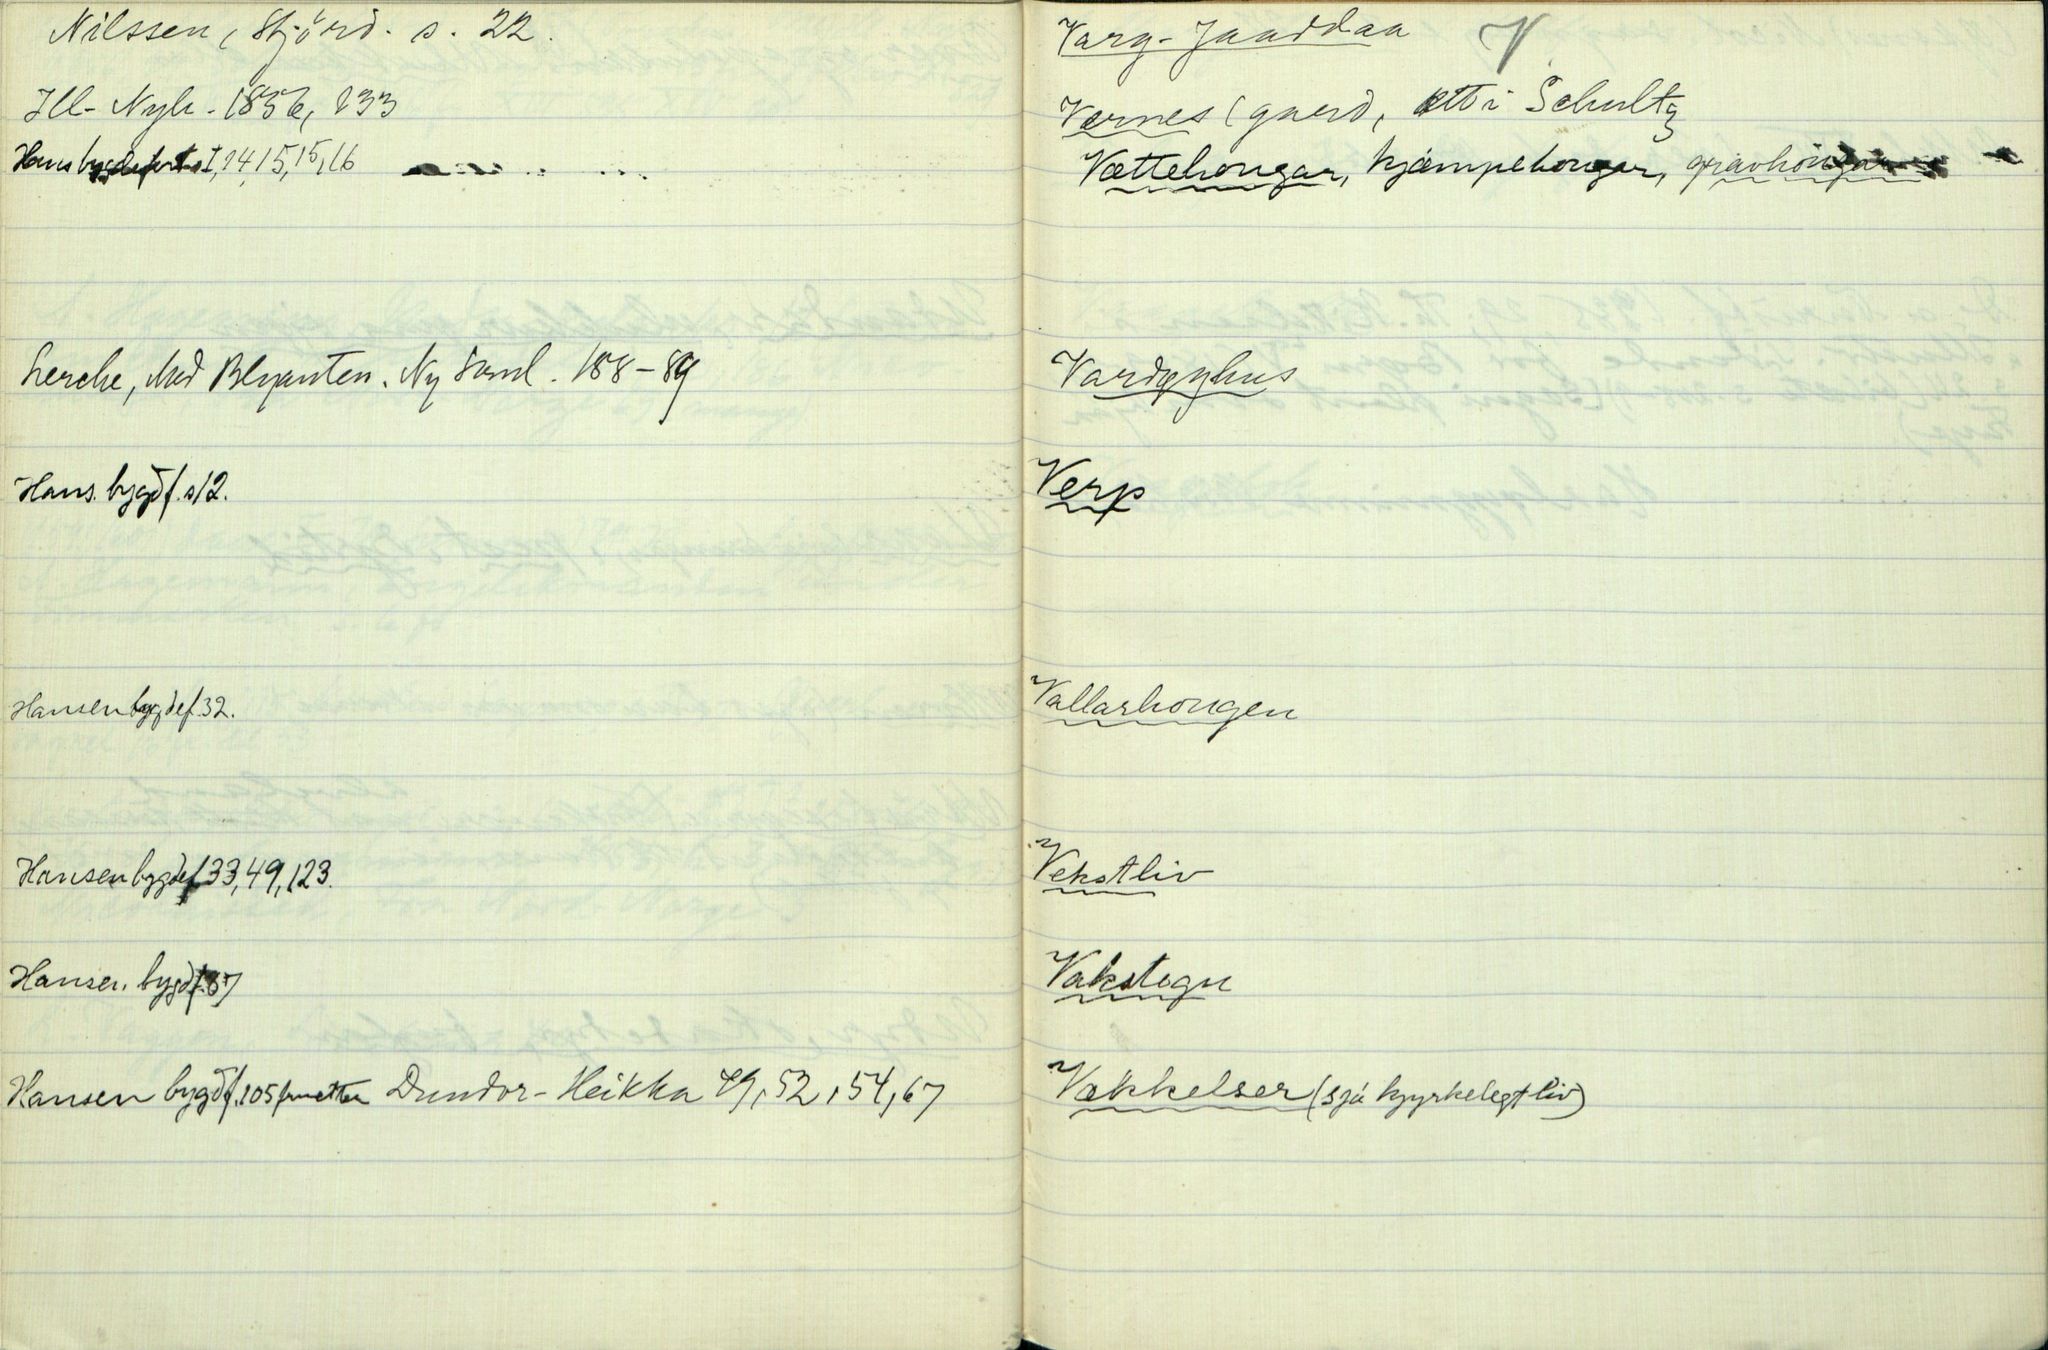 Nilssen, Stjörd. s. 22.
Ill. Nyh. 1856, 233
Hans bygdefort. I, 14, 15, 15, 16
Lerche, Med Blyanten. Ny Saml. 188-89
Hans. bygdf. s 12.
Hansen bygdef. 32.
Hansen bygdef. 33, 49, 123.
Hansen. bygdf. 37
Hansen bygdf. 105 Dundor-Heikka 49, 52, 54, 67
V
Varg-Jaaddaa
Værnes (gard, ætt i Schultz
Vættehougar, kjæmpehougar, gravhougar
Vardøyhus
Verp
Vallarhougen
Vekstliv
Vakstegn
Vækkelser (sjå kyrkelegt liv)